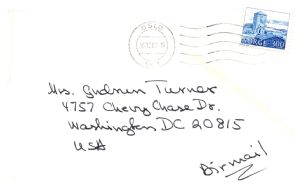 OSLO
NORGE 300
Mrs. Gudrun Turner
4757 Chevy Chase Dr.
Washington, DC 20815
USA
Airmail